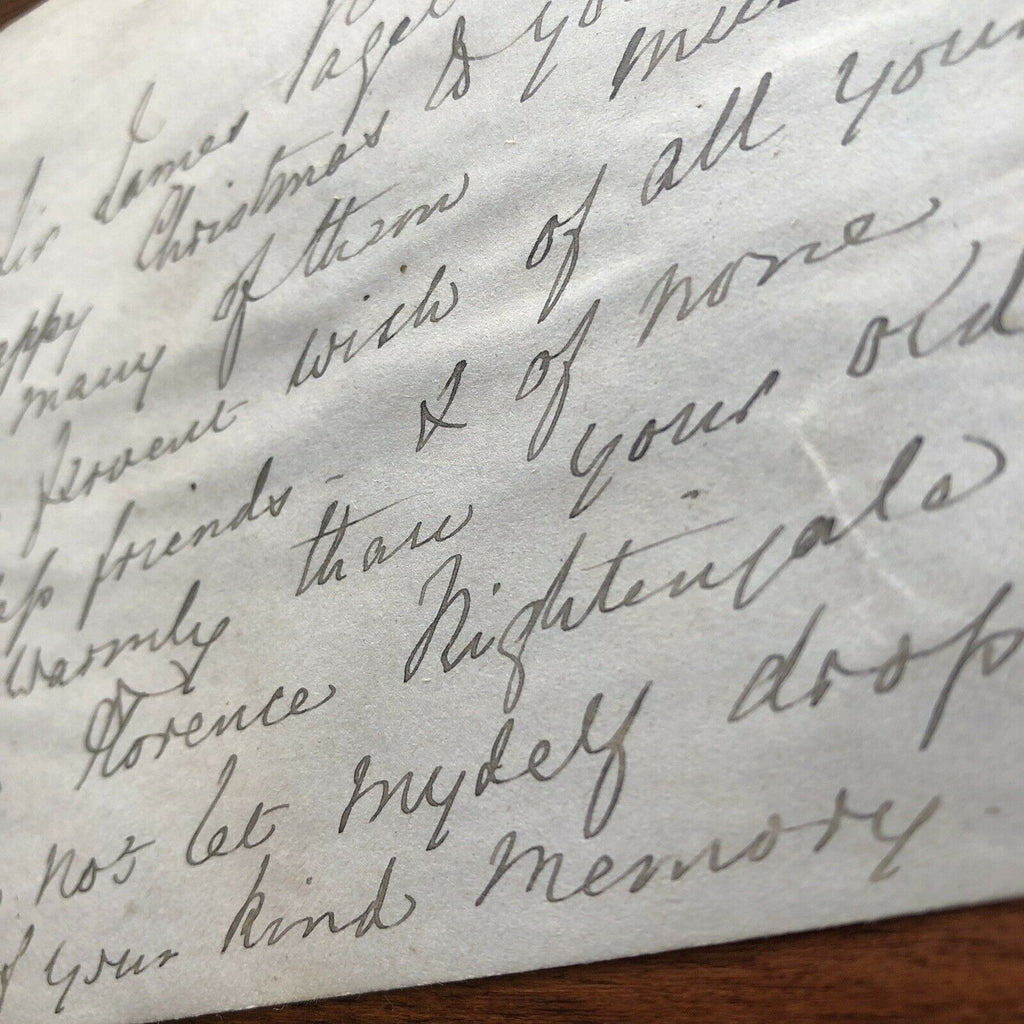 Sir James Paget
Happy Christmas & you
many of them
fervent wish of all your
friends - & of none
warmly than your old
Florence Nightingale
not let myself drop
of your kind memory.